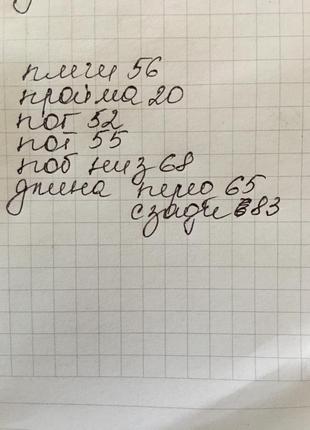 плечи 56
пройма 20
пог 52
пот 55
поб низ 68
длина перед 65
сзади 83